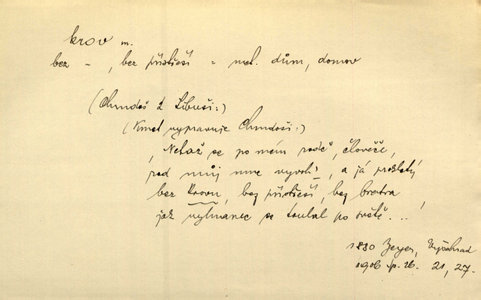 krov m.
bez –, bez přístřeší = met. dům, domov
(Chrudoš k Libuši:)
(Kmet vypravuje Chrudoši:)
„Netaž se po mém rodě, člověče,
rod můj mne vyvrhl, a já prokletý
bez krovu, bez přístřeší, bez bratra,
jak vyhnanec se toulal po světě...
1880 Zeyer, Vyšehrad
1906 p. 16. 21, 27.